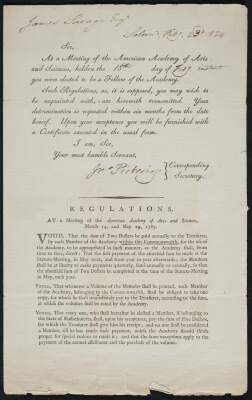 James Savage Esqr
Salem, Feby. 23d. 1824
Sir,
At a Meeting of the American Academy of Arts
and Sciences, holden the 18th. day of Feby. instant
you were elected to be a Fellow of the Academy.
Such Regulations, as, it is supposed, you may wish to
be acquainted with, are herewith transmitted. Your
determination is requested within six months from the date
hereof. Upon your acceptance you will be furnished with
a Certificate executed in the usual form.
I am, Sir,
Your most humble Servant,
Jno. Pickering } Corresponding
Secretary.
REGULATIONS.
AT a Meeting of the American Academy of Arts and Sciences,
March 14, and May 29, 1787.
VOTED, That the sum of Two Dollars be paid annually to the Treasurer,
by each Member of the Academy within this Commonwealth, for the use of
the Academy, to be appropriated in such manner, as the Academy shall, from
time to time, direct: That the first payment of the aforesaid sum be made at the
Statute-Meeting, in May next, and from year to year afterwards; the Members
shall be at liberty to make payments quarterly, semi-annually or annually, so that
the aforesaid sum of Two Dollars be completed at the time of the Statute-Meeting
in May, each year.
VOTED, That whenever a Volume of the Memoirs shall be printed, each Member
of the Academy, belonging to the Commonwealth, shall be obliged to take one
copy, for which he shall immediately pay to the Treasurer, according to the sum,
at which the volumes shall be rated by the Academy.
VOTED, That every one, who shall hereafter be elected a Member, if belonging to
the State of Massachusetts, shall, upon his acceptance, pay the sum of Five Dollars,
for which the Treasurer shall give him his receipt: and no one shall be considered
a Member, till he has made such payment, unless the Academy should think
proper for special reasons to remit it; and that the same exception apply to the
payment of the annual assessment and the purchase of the volumes.